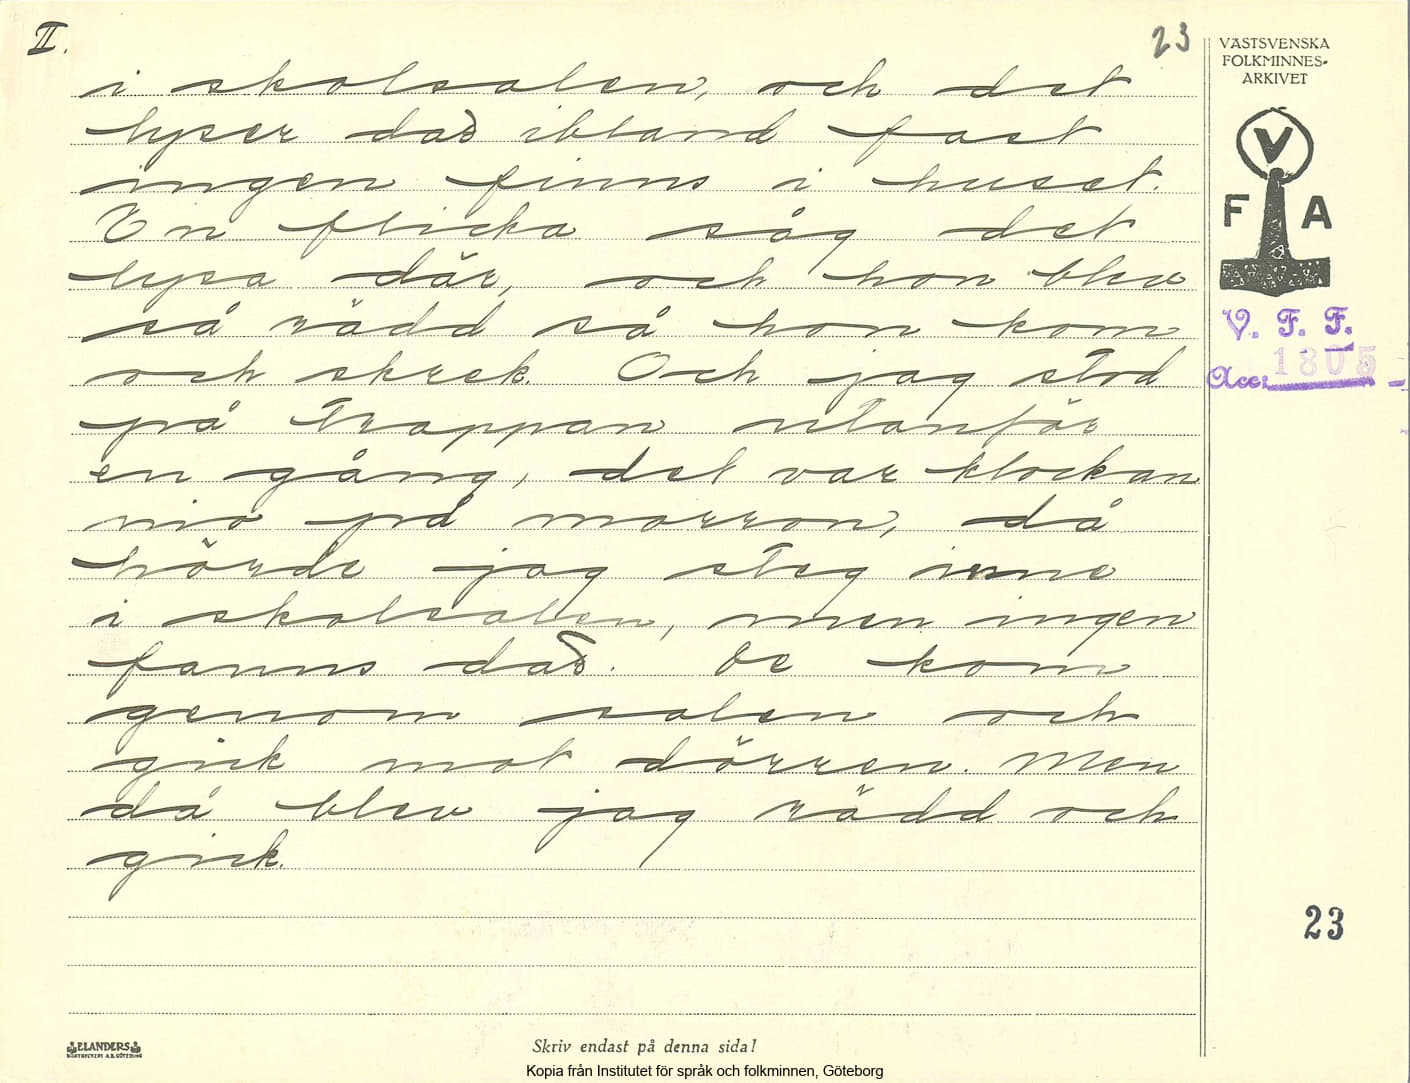 II.
23
VÄSTSVENSKA
FOLKMINNES-
ARKIVET
V
F A
V. F. F.
Acc: 1805
i skolsalen, och det
lyser där ibland fast
ingen finns i huset.
En flicka såg det
lysa där, och hon blev
så rädd så hon kom
och skrek. Och jag stod
på trappan utanför
en gång, det var klockan
nio på morron, då
hörde jag steg inne
i skolsalen, men ingen
fanns där. De kom
genom salen och
gick mot dörren. Men
då blev jag rädd och
gick.
23
ELANDERS
BOKTRYCKERI A.B. GÖTEBORG
Skriv endast på denna sida!
Kopia från Institutet för språk och folkminnen, Göteborg